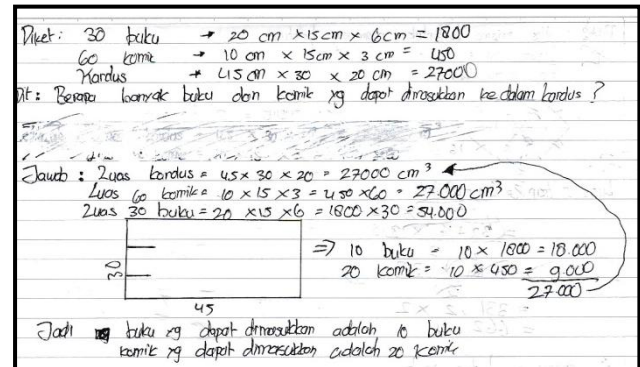 Diket : 30 buku → 20 cm x 15 cm x 6 cm = 1800
60 komik → 10 cm x 15 cm x 3 cm = 450
Kardus → 45 cm x 30 x 20 cm = 27000
Dit : Berapa banyak buku dan komik yg dapat dimasukkan ke dalam kardus ?
Jawab : Luas kardus = 45 x 30 x 20 = 27000 cm³
Luas 60 komik = 10 x 15 x 3 = 450 x 60 = 27.000 cm³
Luas 30 buku = 20 x 15 x 6 = 1800 x 30 = 54.000
30
45
⇒ 10 buku = 10 x 1800 = 18.000
20 komik = 10 x 450 = 9.000
27.000
Jadi buku yg dapat dimasukkan adalah 10 buku
komik yg dapat dimasukkan adalah 20 komik